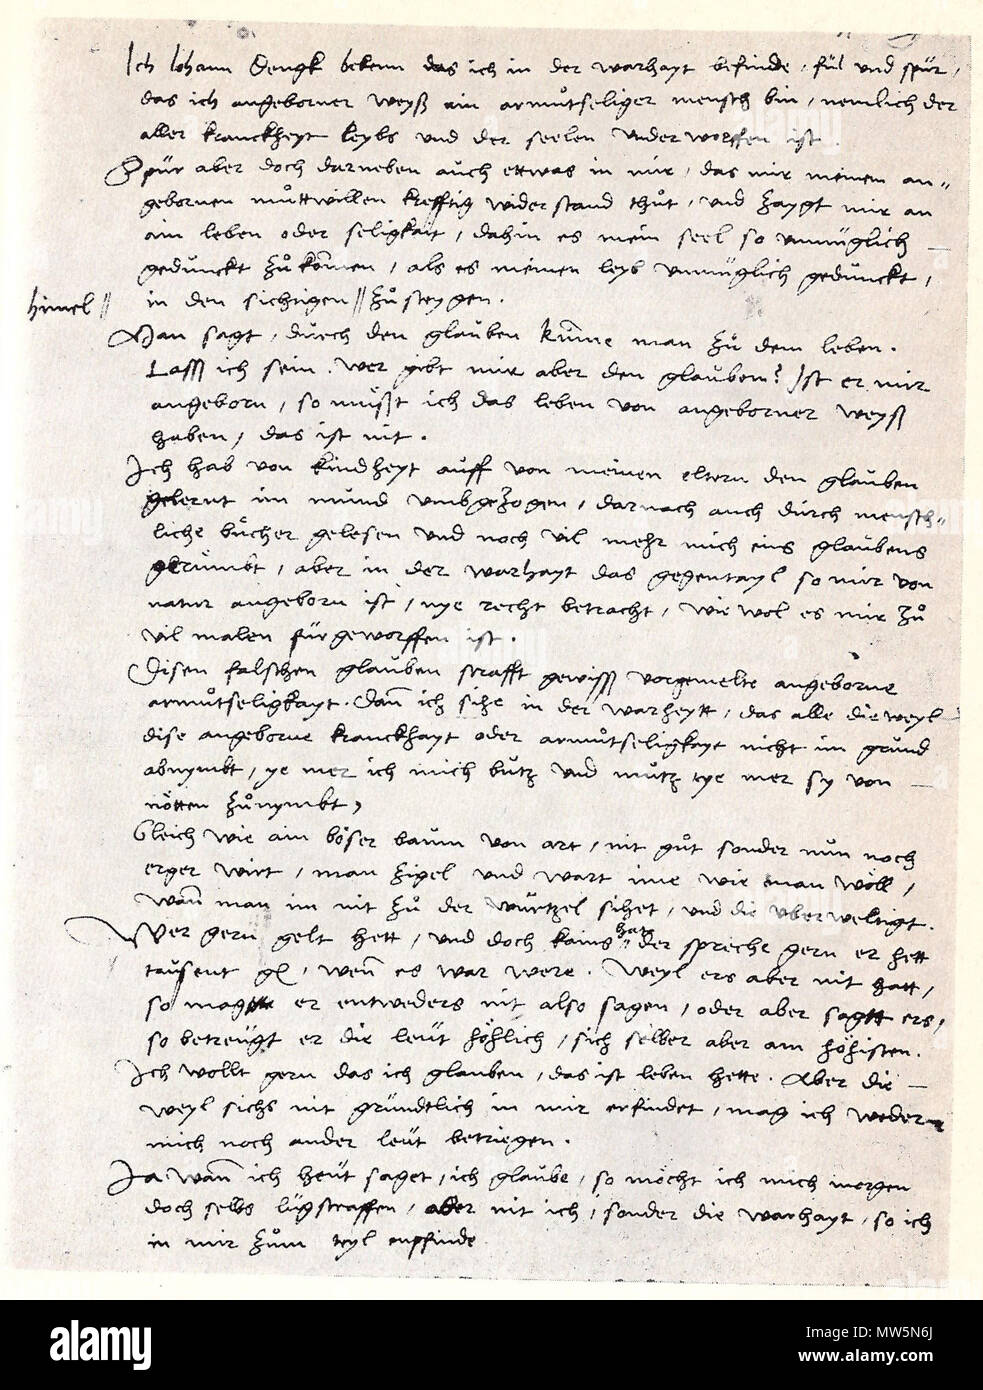 Ich Johann Dengk bekenn das ich in der warhayt befinde, fül und spür,
das ich angeborner weyß ain armůtseliger mensch bin, nemlich der
aller kranckheyt leybs und der seelen underworffen ist.
Spür aber doch darneben auch ettwas in mir, das mir meinen an=
gebornen můttwillen krefftig widerstand thůt, und zaygt mir an
ain leben oder seligkait, dahin es mein seel so unmüglich
gedunckt zů kom̃en, als es meinen leyb unmüglich gedunckt,
himel // in den sichtigen // zů steygen.
Man sagt, durch den glauben kum̃e man zů dem leben.
Lasß ich sein. wer gibt mir aber den glauben? Ist er mir
angeborn, so müßt ich das leben von angeborner weyß
haben, das ist nit.
Ich hab von kindheyt auff von meinen eltern den glauben
gelernt im mund umbgezogen, darnach auch durch mensch=
liche bücher gelesen und noch vil mehr mich eins glaubens
gerümbt, aber in der warhayt das gegentayl so mir von
natur angeborn ist, nye recht betracht, wie wol es mir zů
vil malen fürgeworffen ist.
Disen falschen glauben strafft gewisß vorgemelte angeborne
armůtseligkayt. Dan̄ ich sihe in der warheytt, das alle die weyl
dise angeborne kranckhayt oder armůtseligkayt nicht im grund
abnymbt, ye mer ich mich butz und mutz, ye mer sy von
nötten zůnymbt,
Gleich wie ain böser baum von art, nit gůt sonder nun noch
erger wirt, man zigel und wart ime wie man wöll,
wan̄ man im nit zů der wurtzel sihet, und die uberweltigt.
Wer gern gelt hett, und doch kains hat // der sprech gern er hett
tausent gl, wen̄ es war were. Weyl ers aber nit hatt,
so mag er entweders nit also sagen, oder aber sagtt ers,
so betreugt er die leut höhlich, sich selber aber am höhisten.
Ich wollt gern das ich glauben, das ist leben hette. Aber die
weyl sichs nit gründtlich in mir erfindet, mag ich weder
mich noch ander leut betriegen.
Ja wan̄ ich heut saget, ich glaube, so möcht ich mich morgen
doch selbs lugstraffen, aber nit ich, sonder die warhayt, so ich
in mir zum teyl empfinde
alamy
Image ID: MW5N6J
www.alamy.com